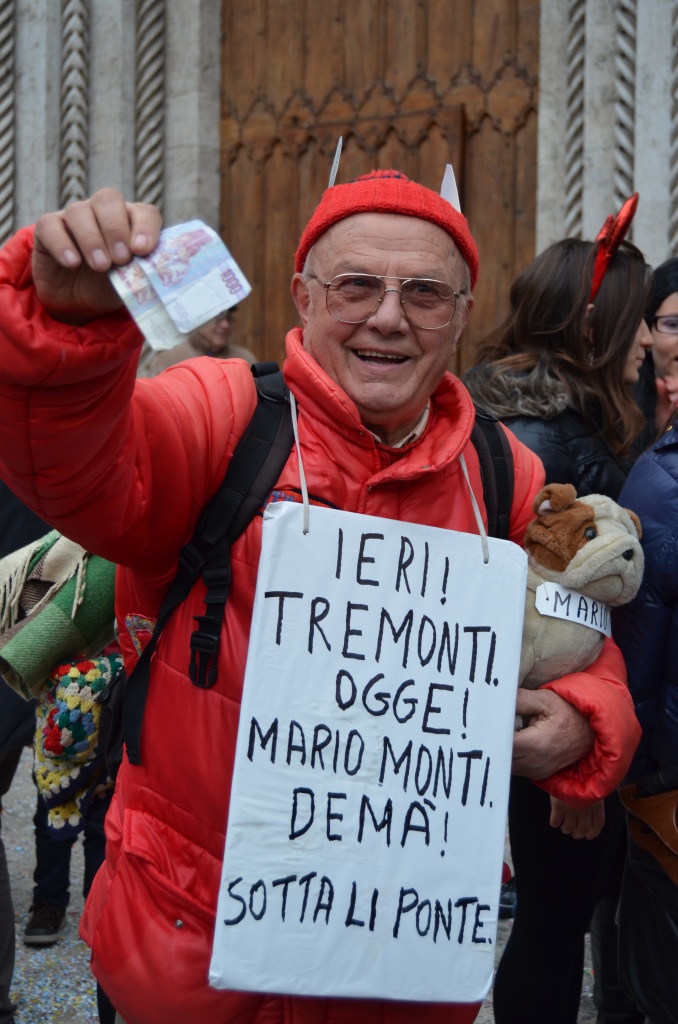 1000
IERI!
TREMONTI.
OGGE!
MARIO MONTI.
DEMÀ!
SOTTA LI PONTE.
MARIO